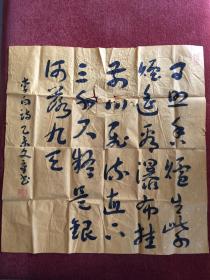 日照香爐生紫
煙遥看瀑布挂
前川飛流直下
三千尺疑是銀
河落九天
李白詩乙未文書